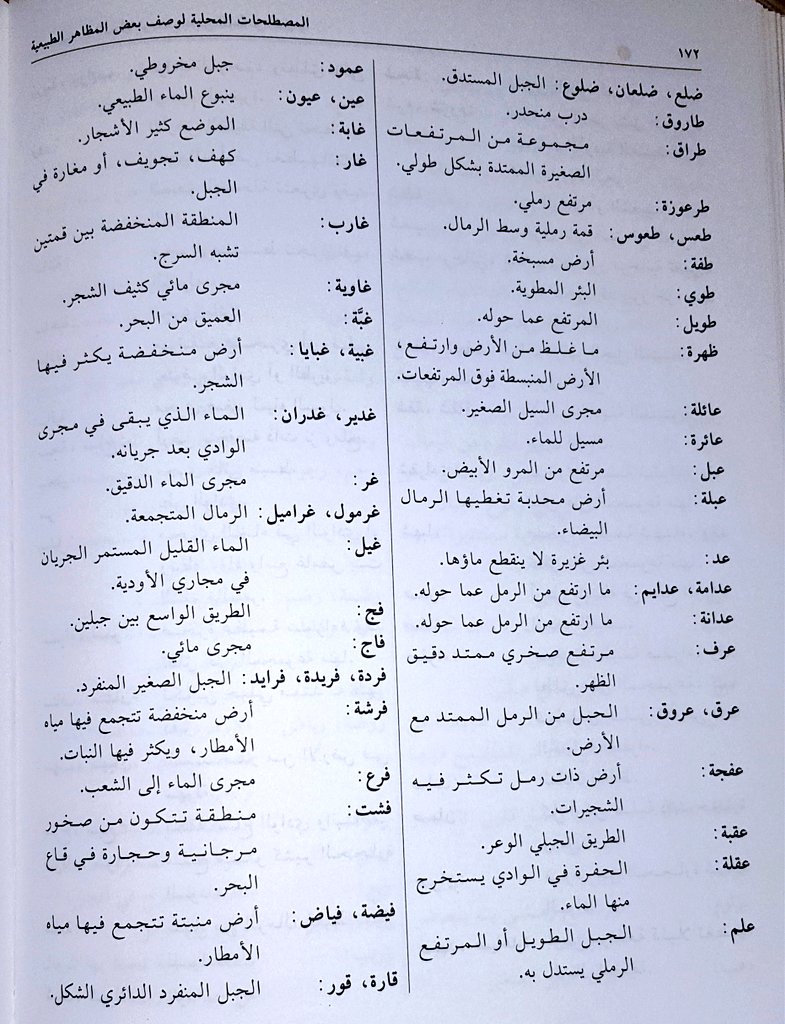 ١٧٢
المصطلحات المحلية لوصف بعض المظاهر الطبيعية
ضلع، ضلعان، ضلوع: الجبل المستدق.
طاروق: درب منحدر.
طراق: مجموعة من المرتفعات
الصغيرة الممتدة بشكل طولي.
طرعوزة: مرتفع رملي.
طعس، طعوس: قمة رملية وسط الرمال.
طفة: أرض مسبخة.
طوي: البئر المطوية.
طويل: المرتفع عما حوله.
ظهرة: ما غلظ من الأرض وارتفع،
الأرض المنبسطة فوق المرتفعات.
عائلة: مجرى السيل الصغير.
عائرة: مسيل للماء.
عبل: مرتفع من المرو الأبيض.
عبلة: أرض محدبة تغطيها الرمال
البيضاء.
عد: بئر غزيرة لا ينقطع ماؤها.
عدامة، عدايم: ما ارتفع من الرمل عما حوله.
عدانة: ما ارتفع من الرمل عما حوله.
عرف: مرتفع صخري ممتد دقيق
الظهر.
عرق، عروق: الحبل من الرمل الممتد مع
الأرض.
عفجة: أرض ذات رمل تكثر فيه
الشجيرات.
عقبة: الطريق الجبلي الوعر.
عقلة: الحفرة في الوادي يستخرج
منها الماء.
علم: الجبل الطويل أو المرتفع
الرملي يستدل به.
عمود: جبل مخروطي.
عين، عيون: ينبوع الماء الطبيعي.
غابة: الموضع كثير الأشجار.
غار: كهف، تجويف، أو مغارة في
الجبل.
غارب: المنطقة المنخفضة بين قمتين
تشبه السرج.
غاوية: مجرى مائي كثيف الشجر.
غبَّة: العميق من البحر.
غبية، غبايا: أرض منخفضة يكثر فيها
الشجر.
غدير، غدران: الماء الذي يبقى في مجرى
الوادي بعد جريانه.
غر: مجرى الماء الدقيق.
غرمول، غراميل: الرمال المتجمعة.
غيل: الماء القليل المستمر الجريان
في مجاري الأودية.
فج: الطريق الواسع بين جبلين.
فاج: مجرى مائي.
فردة، فريدة، فرايد: الجبل الصغير المنفرد.
فرشة: أرض منخفضة تتجمع فيها مياه
الأمطار، ويكثر فيها النبات.
فرع: مجرى الماء إلى الشعب.
فشت: منطقة تتكون من صخور
مرجانية وحجارة في قاع
البحر.
فيضة، فياض: أرض منبتة تتجمع فيها مياه
الأمطار.
قارة، قور: الجبل المنفرد الدائري الشكل.